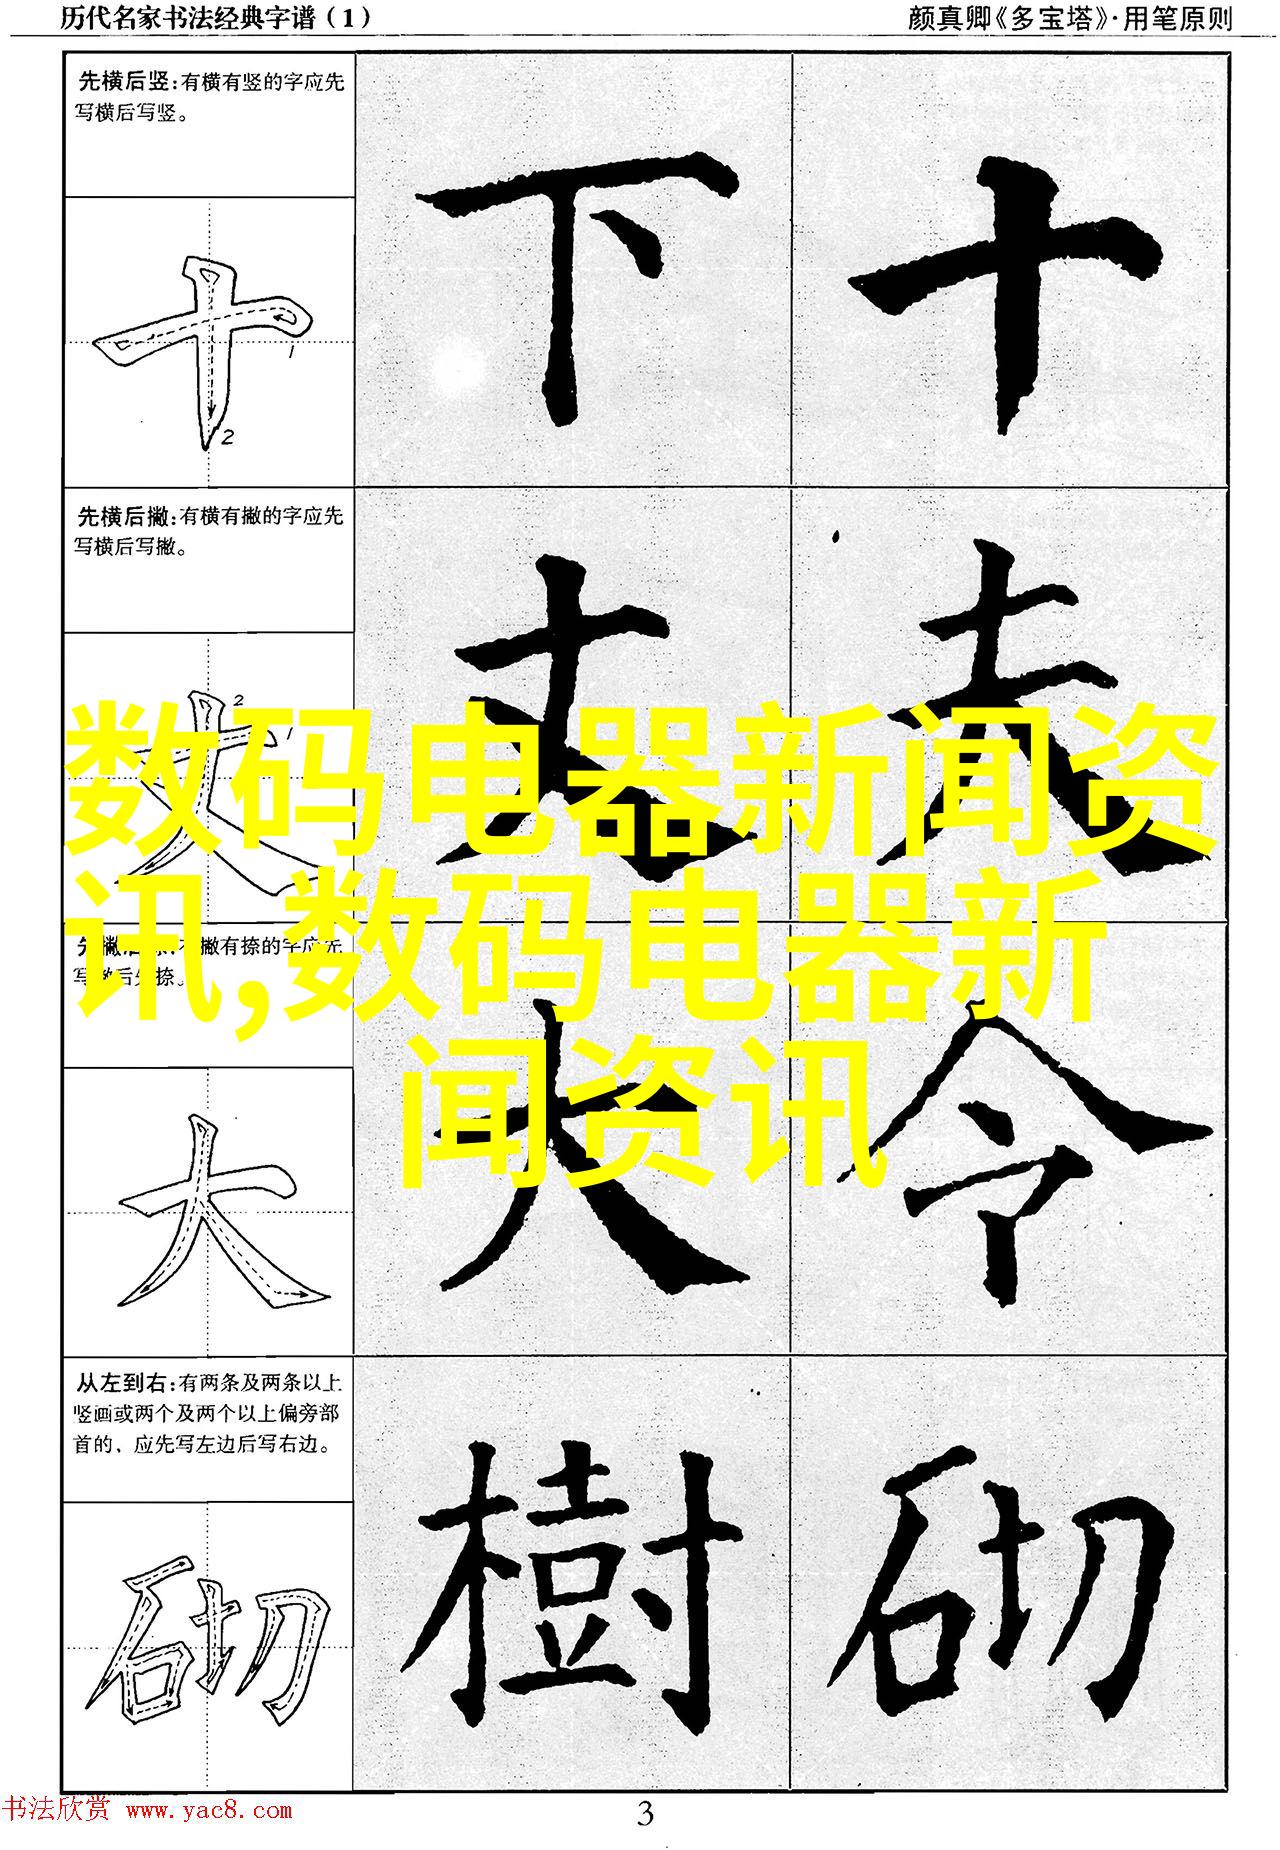 历代名家书法经典字谱（1）
颜真卿《多宝塔》·用笔原则
先横后竖：有横有竖的字应先
写横后写竖。
下 十
1
2
先横后撇：有横有撇的字应先
写横后写撇。
2
丈 去
数码电器新闻资
讯,数码电器新
闻资讯
有撇有捺的字应先
大 令
从左到右：有两条及两条以上
竖画或两个及两个以上偏旁部
首的，应先写左边后写右边。
樹 砌
书法欣赏 www.yac8.com
3